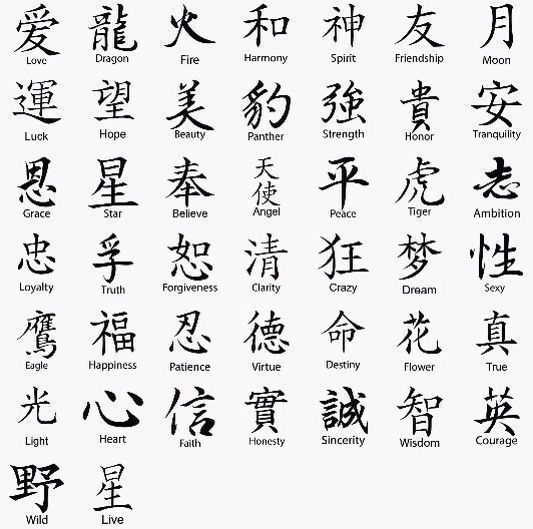 爱 龍 火 和 神 友 月
Love Dragon Fire Harmony Spirit Friendship Moon
運 望 美 豹 強 貴 安
Luck Hope Beauty Panther Strength Honor Tranquility
恩 星 奉 天使 平 虎 志
Grace Star Believe Angel Peace Tiger Ambition
忠 孚 恕 清 狂 梦 性
Loyalty Truth Forgiveness Clarity Crazy Dream Sexy
鷹 福 忍 德 命 花 真
Eagle Happiness Patience Virtue Destiny Flower True
光 心 信 實 誠 智 英
Light Heart Faith Honesty Sincerity Wisdom Courage
野 星
Wild Live